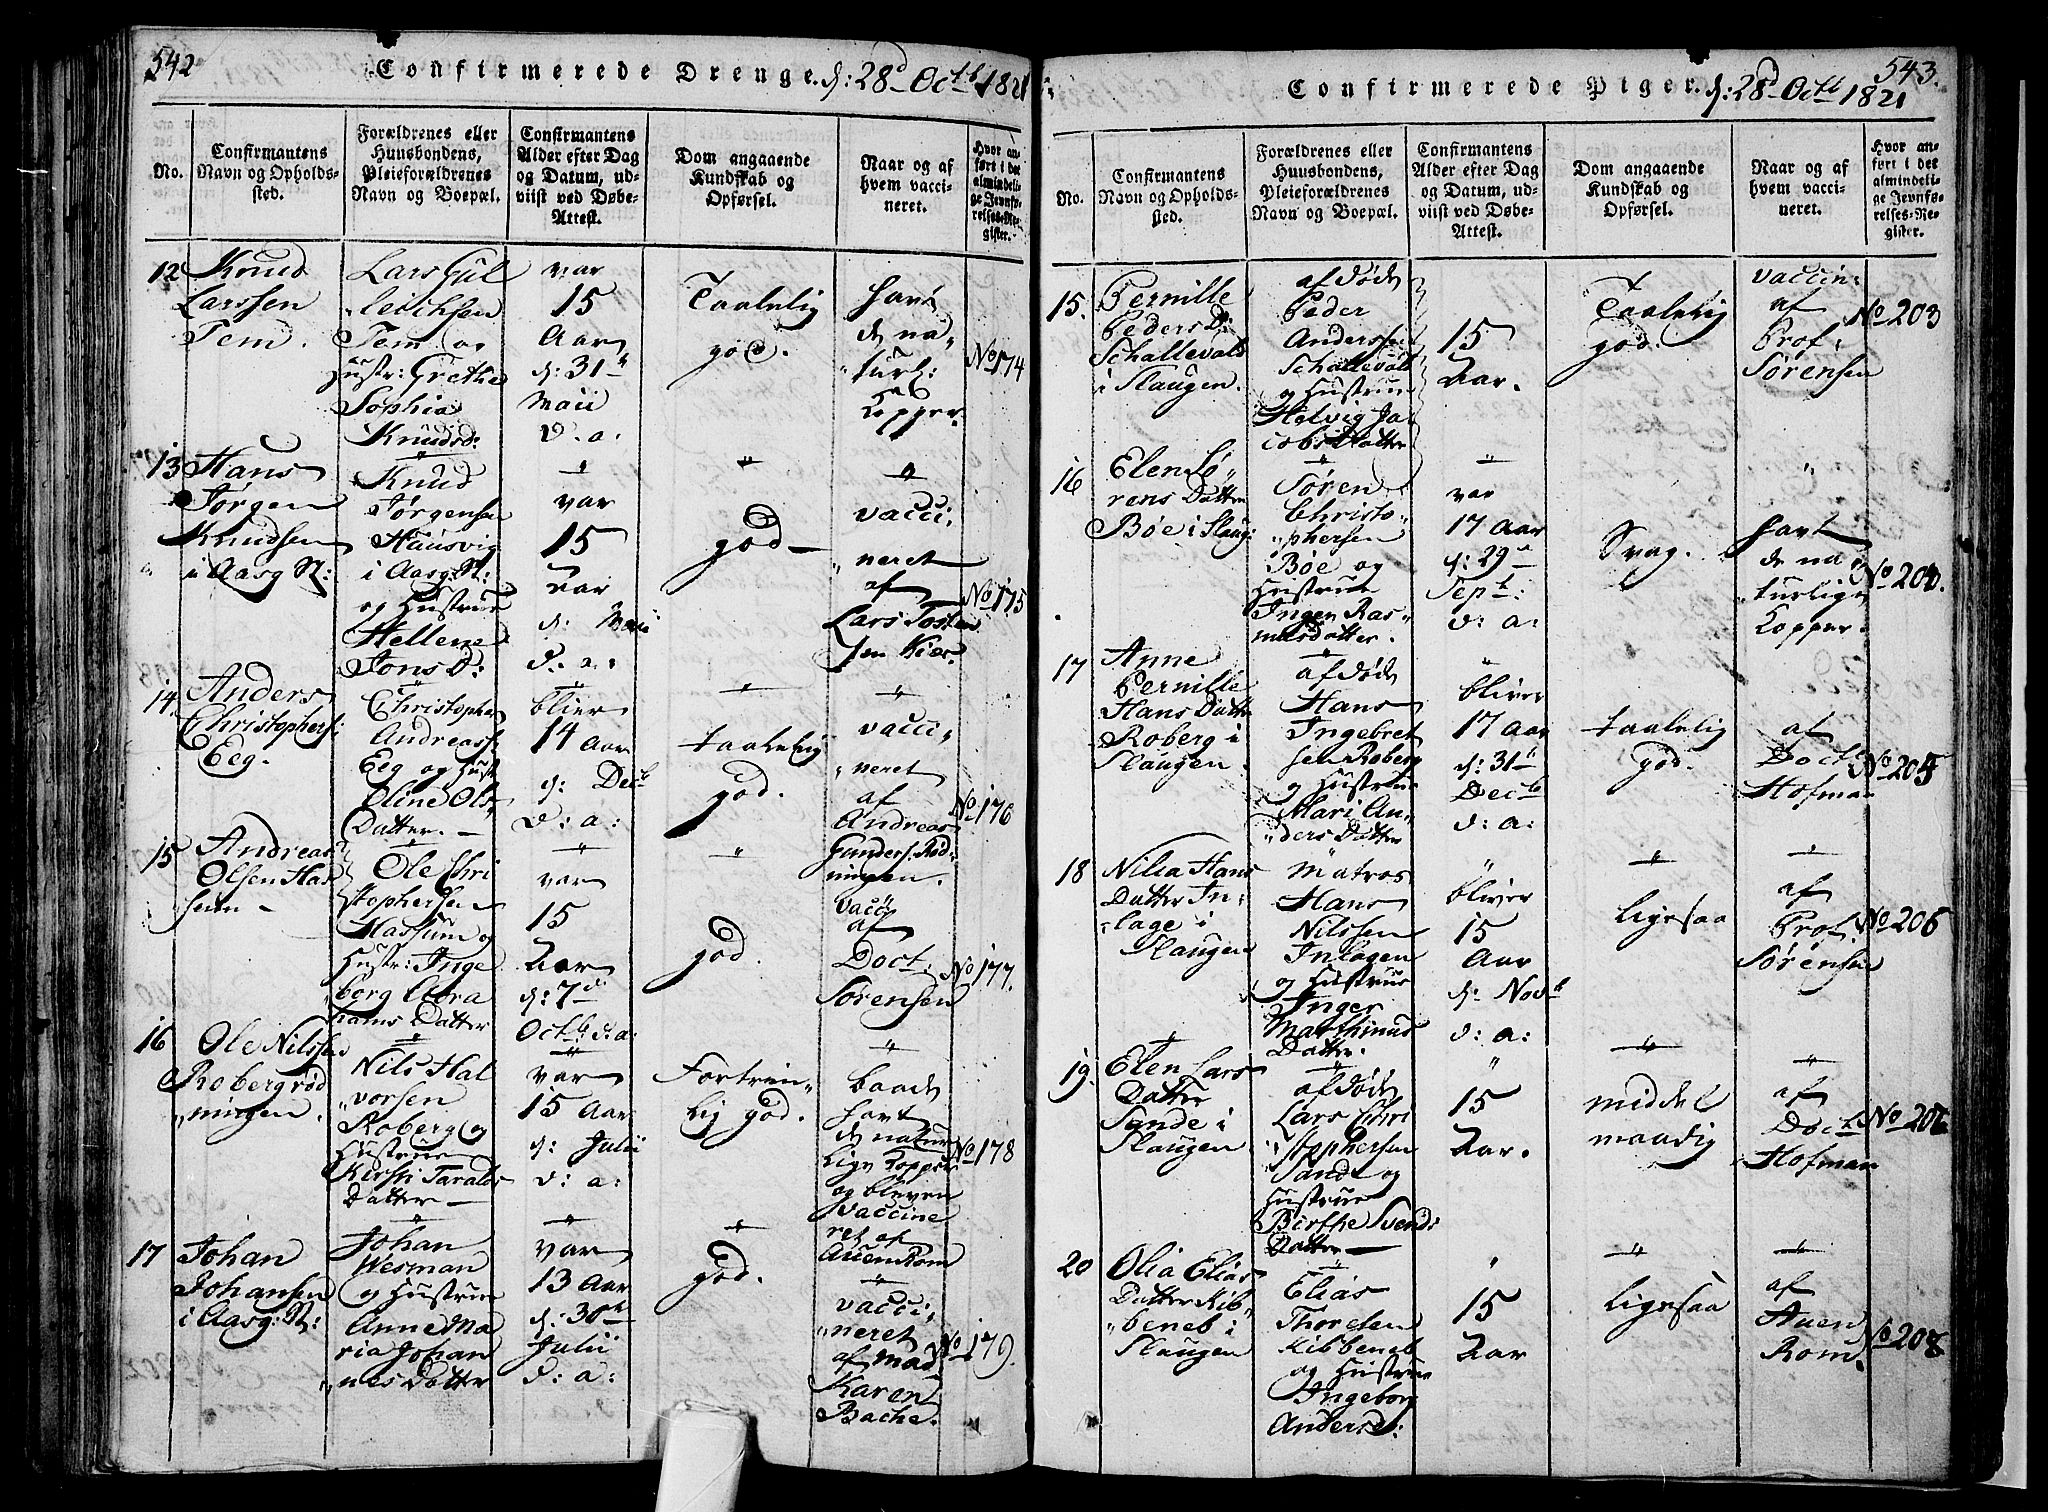 542
Confirmerede Drenge. d: 28d Octb 1821
No.
Confirmantens
Navn og Opholds-
sted.
Forældrenes eller
Huusbondens,
Pleieforældrenes
Navn og Boepæl.
Confirmantens
Alder efter Dag
og Datum, ud-
viist ved Døbe-
Attest.
Dom angaaende
Kundskab og
Opførsel.
Naar og af
hvem vacci-
neret.
Hvor an-
ført i det
almindeli-
ge Jevnfø-
relses-Re-
gister.
12
Knud
Larssen
Tem.
Lars Gul
leichsen
Tem og
Hustr: Grethe
Sophia
Knudsd:
var
15
Aar
d: 31te
Maii
d. a:
Taalelig
god.
havt
de na-
turl:
Kopper.
No 174
13
Hans
Jørgen
Knudsen
i Aasg St:
Knud
Jørgensen
Hausvig
i Aasg: St:
og Hustrue
Hellene
Jons D:
var
15
Aar
d: Maii
d. a:
god
vacci
neret
af
Lars Tosten
sen Kiær.
No 175
14
Anders
Christophers:
Eeg.
Christopher
Andreass:
Eeg og Hust
Eline Ols
Datter.
blier
14 Aar
d: Decb
d: a:
taalelig
god.
vacci
neret
af
Andreas
Gunders: Rød-
ningen.
No 176
15
Andreas
Olsen Has
sum
Ole Chri
stophersen
Hassum og
Hustr: Inge
borg Abra
hams Datter
var
15
Aar
d: 7de
Octb d: a:
god.
vacc
af
Doct:
Sørensen
No 177.
16
Ole Nilssen
Roberg rød
ningen.
Nils Hal
vorsen
Roberg og
Hustrue
Kirsti Taralds
Datter
var
15 Aar
d: Julii
d: a:
Fortrin
lig god.
baade
havt
de natur
lige Kopper
og bleven
vaccine
ret af
Auen Rom
No 178
17
Johan
Johansen
i Aasg: St:
Johan
Wesman
og Hustrue
Anne Ma
ria Johan
nes Datter
var
13 Aar
d: 30te
Julii
d: a:
god.
vacci
neret
af Mad
Karen
Bache.
No 179.
543.
Confirmerede Piger. d: 28d Octb 1821
No.
Confirmantens
Navn og Opholds-
sted.
Forældrenes eller
Huusbondens,
Pleieforældrenes
Navn og Boepæl.
Confirmantens
Alder efter Dag
og Datum, ud-
viist ved Døbe-
Attest.
Dom angaaende
Kundskab og
Opførsel.
Naar og af
hvem vacci-
neret.
Hvor an-
ført i det
almindeli-
ge Jevnfø-
relses-Re-
gister.
15.
Pernille
Peders D:
Schallevald
i Slaugen.
afdøde
Peder
Anderssen
Schallevald
og Hustrue
Helvig Ja-
cobs Datter
15
Aar.
Taalelig
god.
vaccin:
af
Prof:
Sørensen
No 203
16
Elen Sø
rens Datter
Bøe i Slaug:
Søren
Christo-
phersen
Bøe og
Hustrue
Inger Ras-
musdatter.
var
17 Aar
d: 29de
Septb:
d: a:
Svag.
havt
de na
turlige
Kopper.
No 204.
17
Anne
Pernille
Hans Datter
Roberg i
Slaugen.
afdøde
Hans
Ingebret
sen Roberg
og Hustrue
Mari An-
ders Datter
bliver
17 Aar
d: 31te
Decb
d: a:
taalelig
god.
af
Doct
Hofman
No 205
18
Nilia Hans
Datter In-
lage i
Slaugen
Matros
Hans
Nilssen
Inlagen
og Hustrue
Inger
Marthinus
Datter.
bliver
15
Aar
d: Novb
d: a:
ligesaa
af
Prof.
Sørensen
No 206
19.
Elen Lars
Datter
Sande i
Slaugen
afdøde
Lars Chri
stophersen
Sande og
Hustrue
Birthe Svend:
Datter
15
Aar.
middel
maadig
af
Doct
Hofman
No 207
20
Olia Elias
Datter Rib-
beneb i
Slaugen
Elias
Thorelsen
Ribbeneb
og Hustrue
Ingeborg
Andersd:
15
Aar
ligesaa
af
Auen
Rom.
No 208